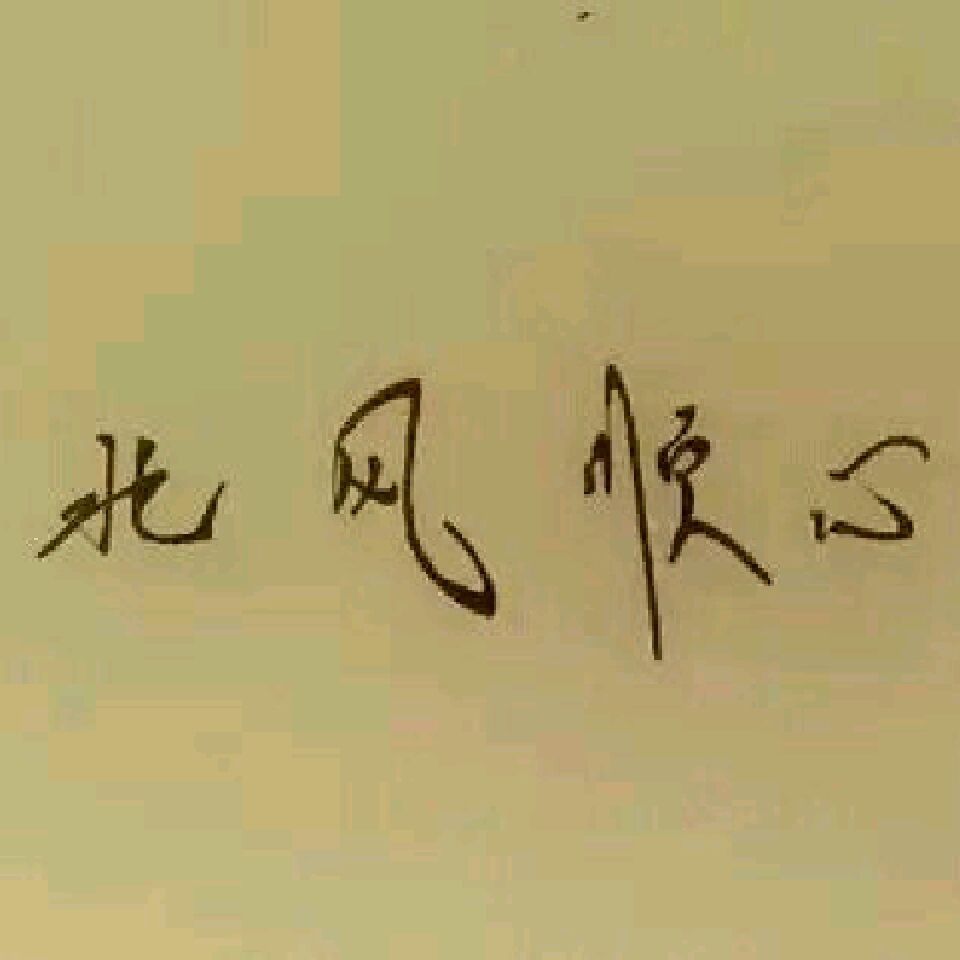 北风顺心